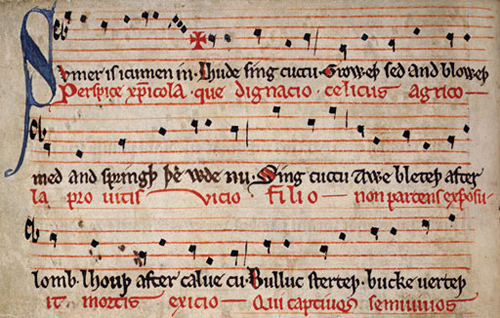 Sumer is icumen in · Lhude sing cuccu · Groweþ sed and bloweþ
Perspice xp̅icola · que dignacio · celicus agrico—
med and springþ þe wde nu · Sing cuccu Awe bleteþ after
la pro uitis vicio · filio — non parcens exposu
lomb · lhouþ after calue cu · Bulluc sterteþ · bucke uerteþ
it mortis exicio — Qui captiuos semiuiuos